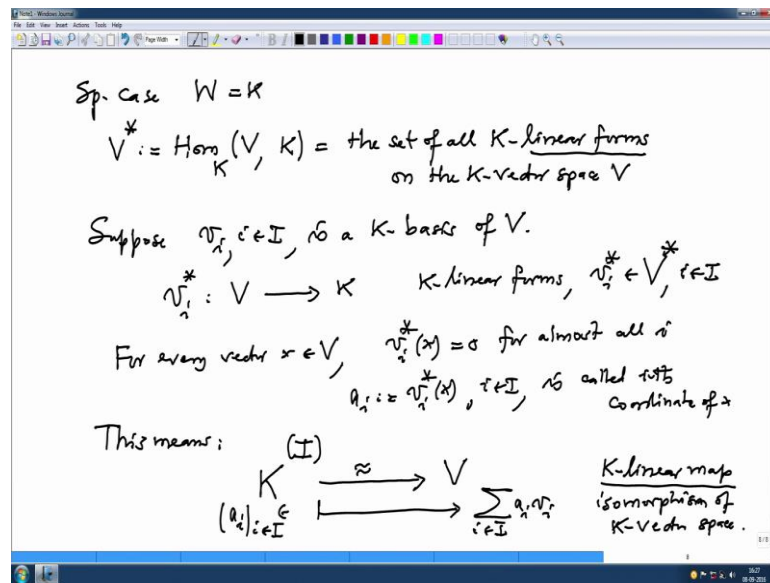 Note1 - Windows Journal
File Edit View Insert Actions Tools Help
Page Width
B I
Sp. case W = K
V* := Hom_K (V, K) = the set of all K-linear forms
on the K-vector space V
Suppose v_i, i ∈ I, is a K-basis of V.
v_i* : V ⟶ K K-linear forms, v_i* ∈ V*, i ∈ I
For every vector x ∈ V, v_i*(x) = 0 for almost all i
a_i := v_i*(x), i ∈ I, is called i-th
coordinate of x
This means:
K^(I) ⟶≈ V K-linear map
(a_i)_{i∈I} ∈ ⟼ ∑_{i∈I} a_i v_i isomorphism of
K-vector space.
8/8
8
16:27
08-09-2016